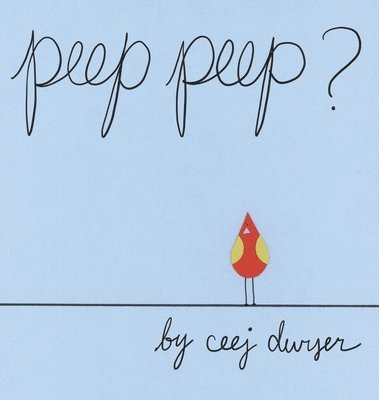 peep peep?
by ceej dwyer